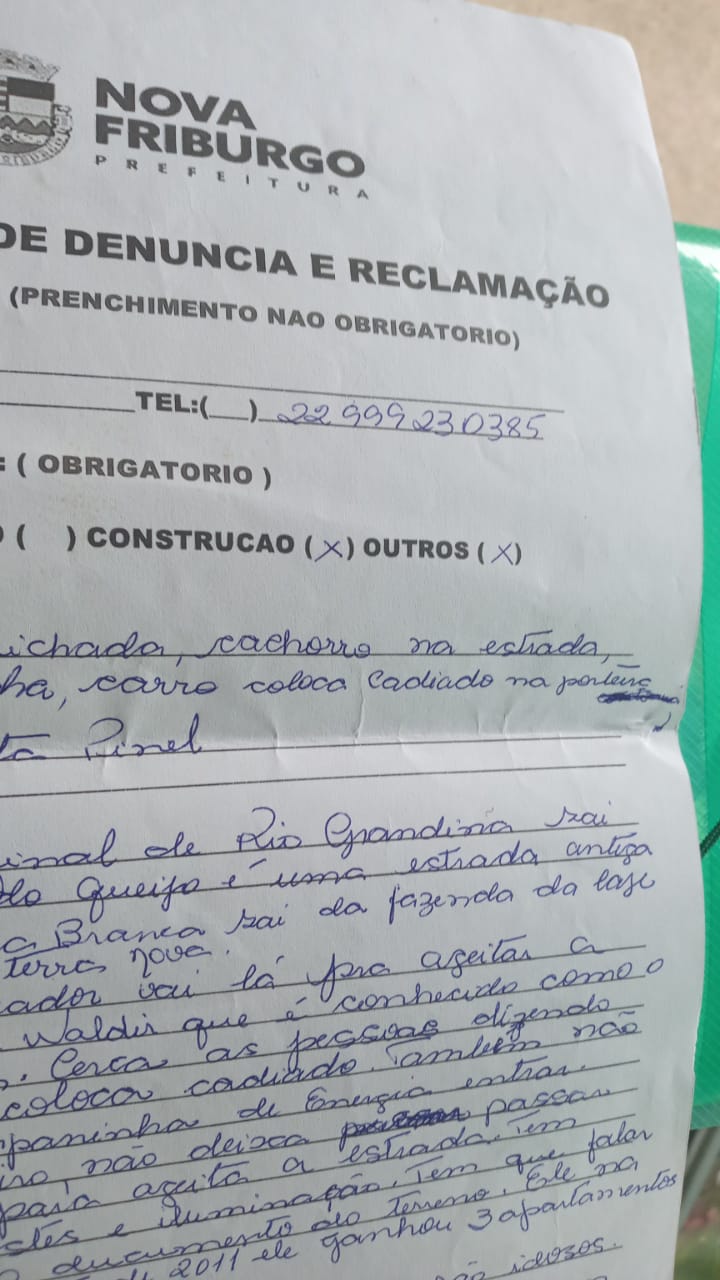 NOVA
FRIBURGO
PREFEITURA
DE DENUNCIA E RECLAMAÇÃO
(PRENCHIMENTO NAO OBRIGATORIO)
TEL:( ) 22 999230385
: ( OBRIGATORIO )
( ) CONSTRUCAO (X) OUTROS (X)
ichada, cachorro na estrada,
ha, carro coloca Cadiado na porteira
Pinel
inal de Rio Grandina sai
do Queijo é uma estrada antiga
a Branca sai da fazenda da laje
terra nova.
ador vai lá pra ageitar a
Waldir que é conhecido como o
. Cerca as pessoas dizendo
coloca cadiado. Também não
paninha de Energia entrar.
iro, não deixa passar
para ageita a estrada. Tem
stes e iluminação. Tem que falar
o ducumento do terreno. Ele na
2011 ele ganhou 3 apartamentos
ão idosos.